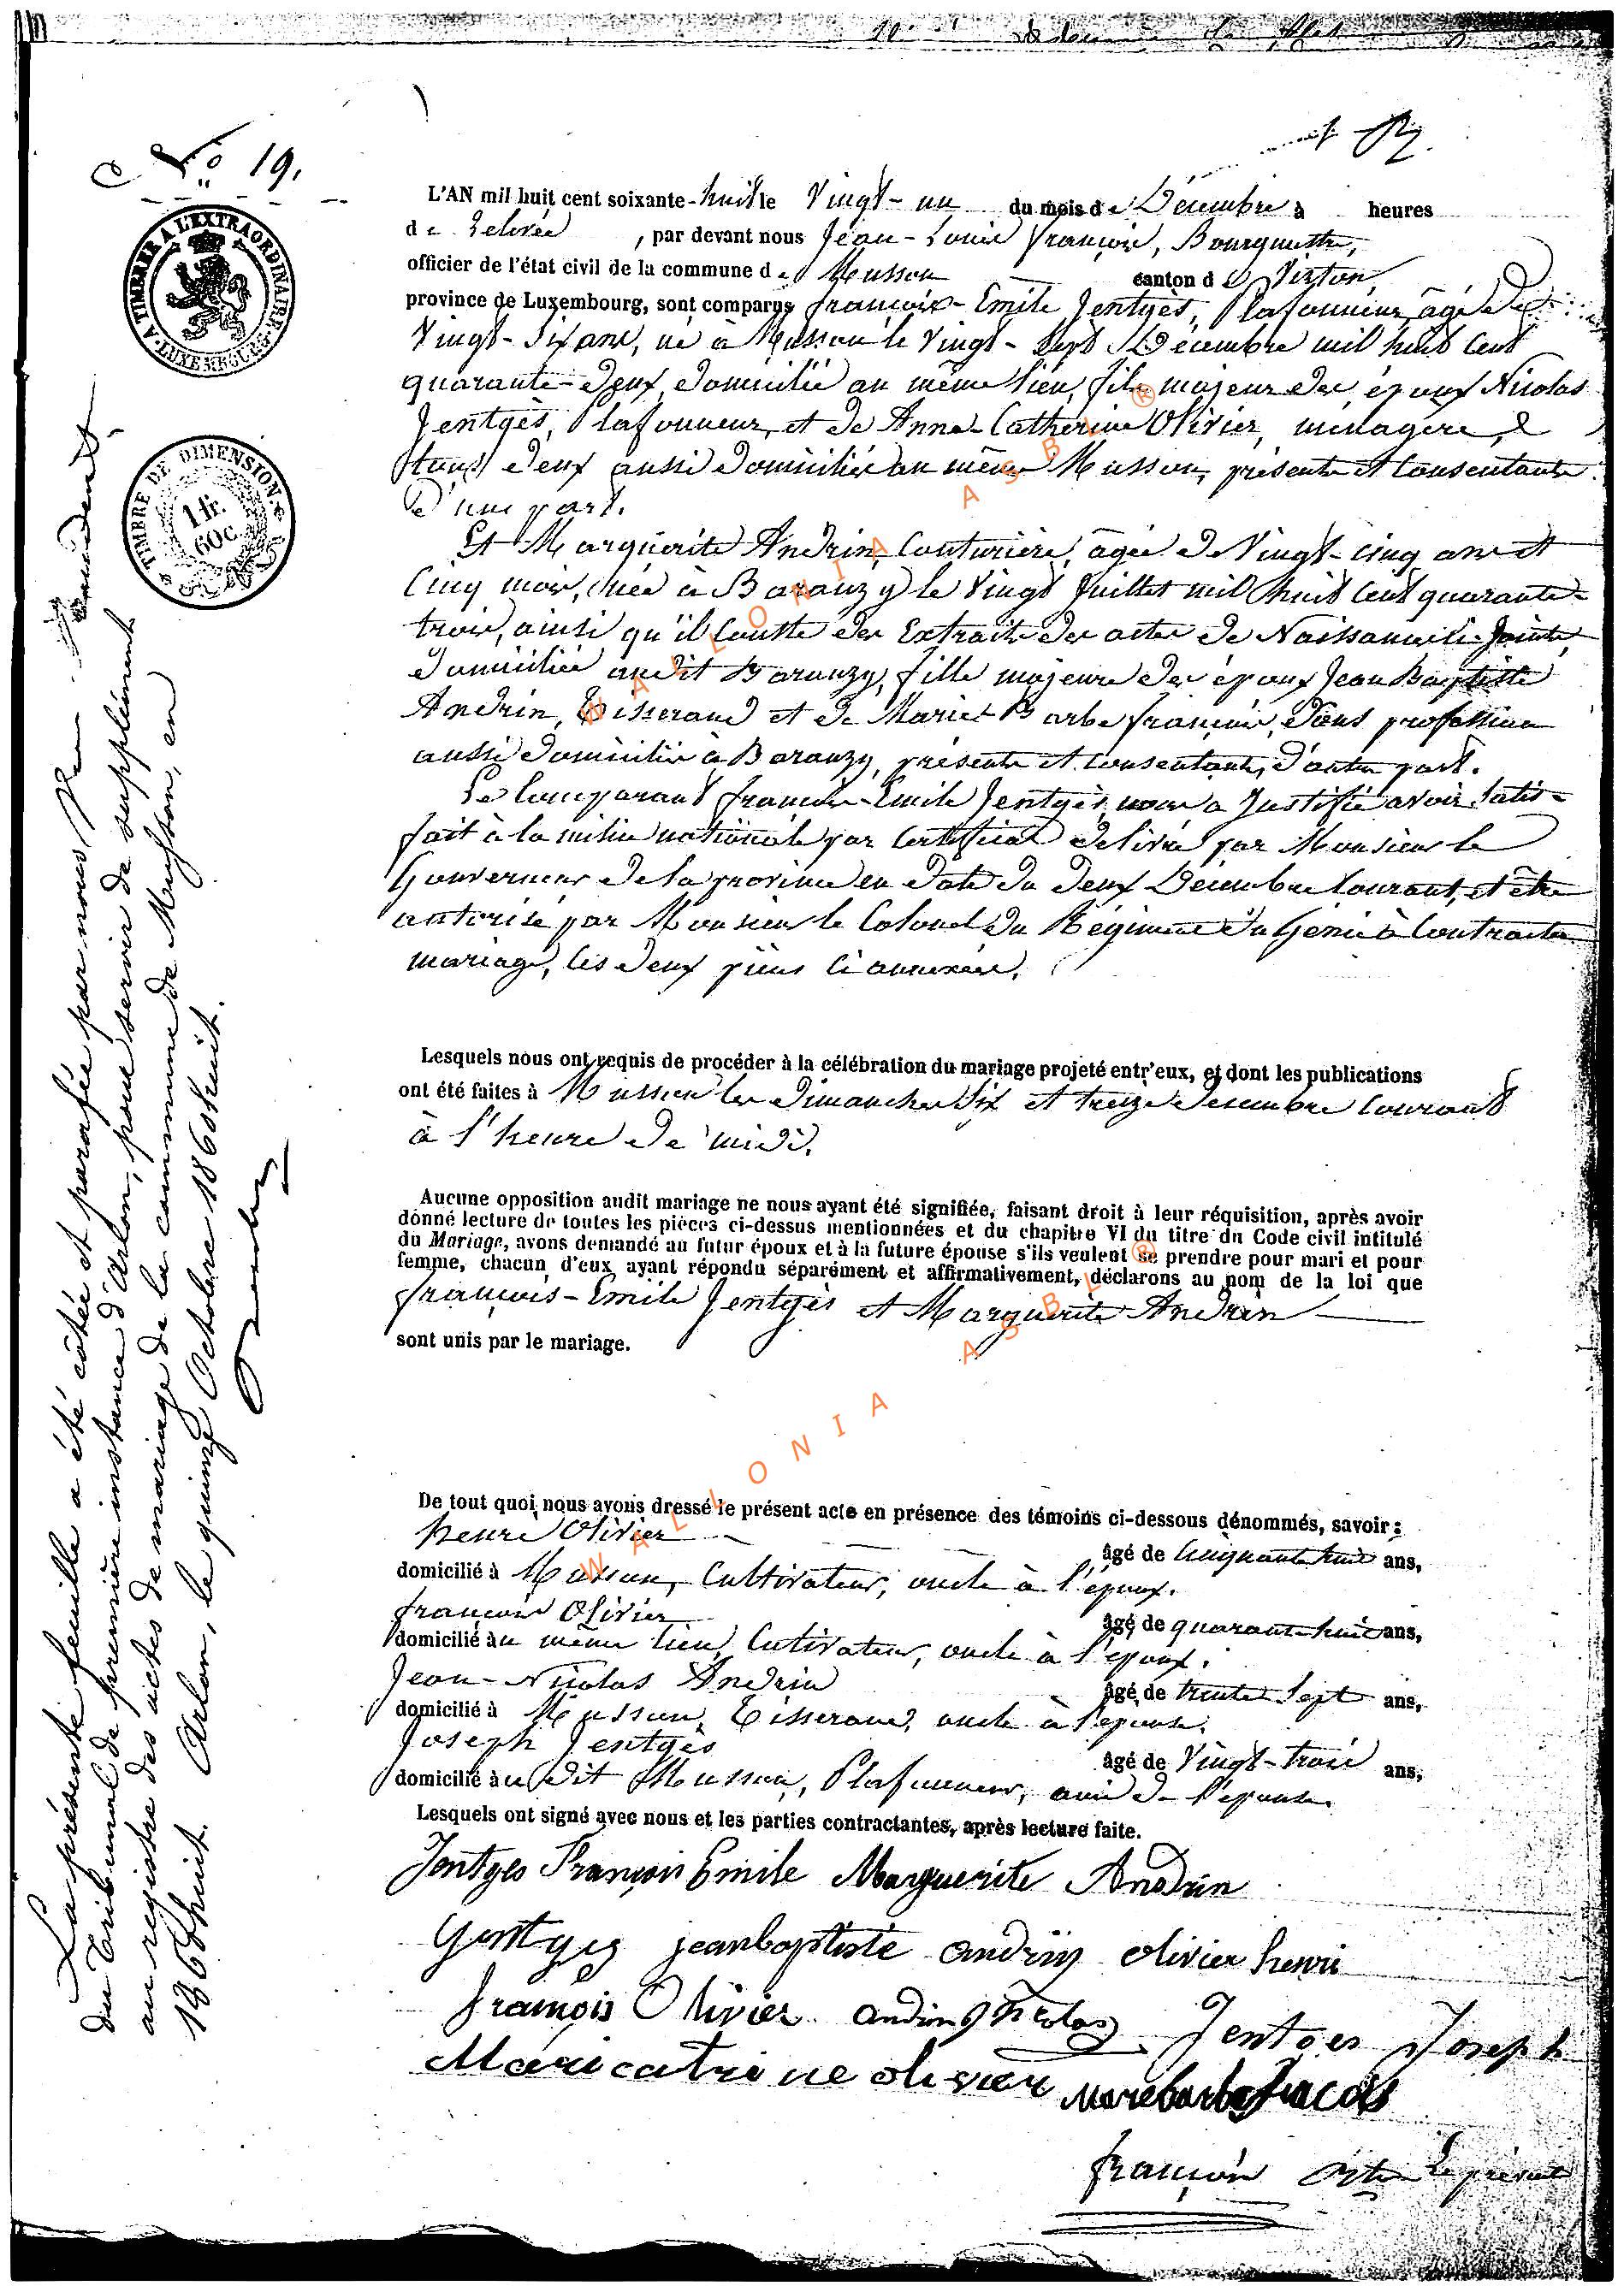 N° 19.
A TIMBRER A L'EXTRAORDINAIRE
LUXEMBOURG
TIMBRE DE DIMENSION
1 fr.
60 c
La présente feuille a été cotée et parafée par nous,
du Tribunal de première instance d'Arlon, pour servir de supplément
au registre des actes de mariage de la commune de Musson, en
1860huit. Arlon, le quinze Octobre 1860huit.
L'AN mil huit cent soixante-huit le Vingt-un du mois de Décembre à heures
de relevée, par devant nous Jean-Louis François, Bourgmestre,
officier de l'état civil de la commune de Musson canton de Virton,
province de Luxembourg, sont comparus François-Emile Jentgès, Plafonneur, âgé de
Vingt-six ans, né à Musson le Vingt-sept Décembre mil huit cent
quarante-deux, domicilié au même lieu, fils majeur des époux Nicolas
Jentgès, Plafonneur, et de Anne-Catherine Olivier, ménagère,
tous deux aussi domiciliés au même Musson, présents et consentants
d'une part.
Et Marguerite Andrin, Couturière, âgée de Vingt-cinq ans et
cinq mois, née à Baranzy le Vingt Juillet mil huit cent quarante-
trois, ainsi qu'il conste des Extraits des actes de Naissance ci-joints,
domiciliée audit Baranzy, fille majeure des époux Jean Baptiste
Andrin, Tisserand et de Marie-Barbe François, sans profession
aussi domiciliés à Baranzy, présents et consentants, d'autre part.
Le comparant François-Emile Jentgès, nous a justifié avoir satis-
fait à la milice nationale par certificat délivré par Monsieur le
Gouverneur de la province en date du deux Décembre courant, et être
autorisé par Monsieur le Colonel du Régiment du Génie à contracter
mariage, les deux pièces ci annexées.
Lesquels nous ont requis de procéder à la célébration du mariage projeté entr'eux, et dont les publications
ont été faites à Musson les Dimanches six et treize Décembre courant
à l'heure de midi.
Aucune opposition audit mariage ne nous ayant été signifiée, faisant droit à leur réquisition, après avoir
donné lecture de toutes les pièces ci-dessus mentionnées et du chapitre VI du titre du Code civil intitulé
du Mariage, avons demandé au futur époux et à la future épouse s'ils veulent se prendre pour mari et pour
femme, chacun d'eux ayant répondu séparément et affirmativement, déclarons au nom de la loi que
François-Emile Jentgès et Marguerite Andrin
sont unis par le mariage.
De tout quoi nous avons dressé le présent acte en présence des témoins ci-dessous dénommés, savoir :
Henri Olivier âgé de cinquante huit ans,
domicilié à Musson, Cultivateur, oncle à l'époux.
François Olivier âgé de quarante huit ans,
domicilié au même lieu, Cultivateur, oncle à l'époux.
Jean-Nicolas Andrin âgé de trente sept ans,
domicilié à Musson, Tisserand, oncle à l'épouse.
Joseph Jentgès âgé de Vingt-trois ans,
domicilié audit Musson, Plafonneur, ami de l'épouse.
Lesquels ont signé avec nous et les parties contractantes, après lecture faite.
Jentges François Emile Marguerite Andrin
Gentges jeanbaptiste andrin olivier henri
françois Olivier andrin nicolas Jentges Joseph
Maricatrine olivier Marebarbe fracois
françois
WALLONIA ASBL ®
WALLONIA ASBL ®